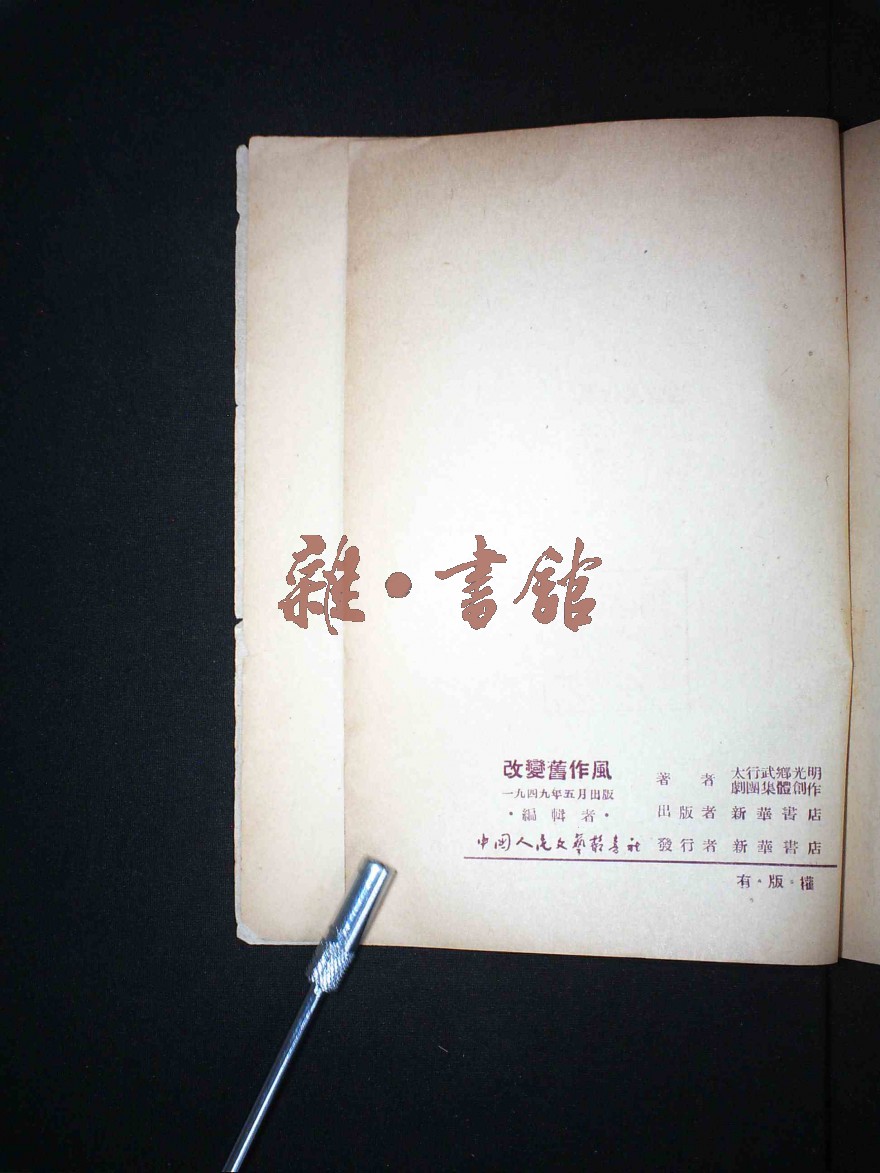 雜·書館
改變舊作風
一九四九年五月出版
·編輯者·
中國人民文藝叢書社
著者 太行武鄉光明
劇團集體創作
出版者 新華書店
發行者 新華書店
有·版·權